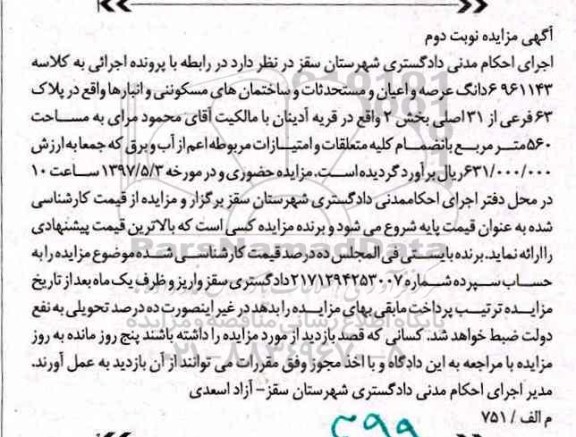 آگهی مزایده نوبت دوم
اجرای احکام مدنی دادگستری شهرستان سقز در نظر دارد در رابطه با پرونده اجرائی به کلاسه
۹۶۱۱۴۳ ۶دانگ عرصه و اعیان و مستحدثات و ساختمان های مسکونی و انبارها واقع در پلاک
۶۳ فرعی از ۳۱ اصلی بخش ۲ واقع در قریه آدینان با مالکیت آقای محمود مرای به مساحت
۵۶۰متر مربع بانضمام کلیه متعلقات و امتیازات مربوطه اعم از آب و برق که جمعا به ارزش
۶۳۱/۰۰۰/۰۰۰ریال برآورد گردیده است. مزایده حضوری و در مورخه ۱۳۹۷/۵/۳ ساعت ۱۰
در محل دفتر اجرای احکام‌مدنی دادگستری شهرستان سقز برگزار و مزایده از قیمت کارشناسی
شده به عنوان قیمت پایه شروع می شود و برنده مزایده کسی است که بالاترین قیمت پیشنهادی
را ارائه نماید. برنده بایستی فی المجلس ده درصد قیمت کارشناسی شده موضوع مزایده را به
حساب سپرده شماره ۲۱۷۱۲۹۴۲۵۳۰۰۷ دادگستری سقز واریز و ظرف یک ماه بعد از تاریخ
مزایده ترتیب پرداخت مابقی بهای مزایده را بدهد در غیر اینصورت ده درصد تحویلی به نفع
دولت ضبط خواهد شد. کسانی که قصد بازدید از مورد مزایده را داشته باشند پنج روز مانده به روز
مزایده با مراجعه به این دادگاه و با اخذ مجوز وفق مقررات می توانند از آن بازدید به عمل آورند.
مدیر اجرای احکام مدنی دادگستری شهرستان سقز- آزاد اسعدی
م الف / ۷۵۱
۴۹۹
ParsNamadData